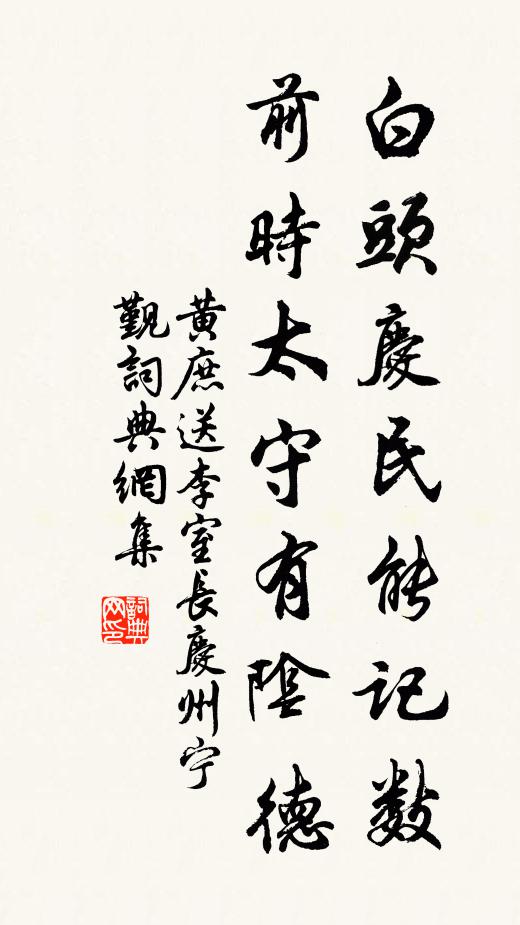 白頭慶民能記數
前時太守有陰德
黃庶送李室長慶州宁
觐詞典網集
詞典
网印